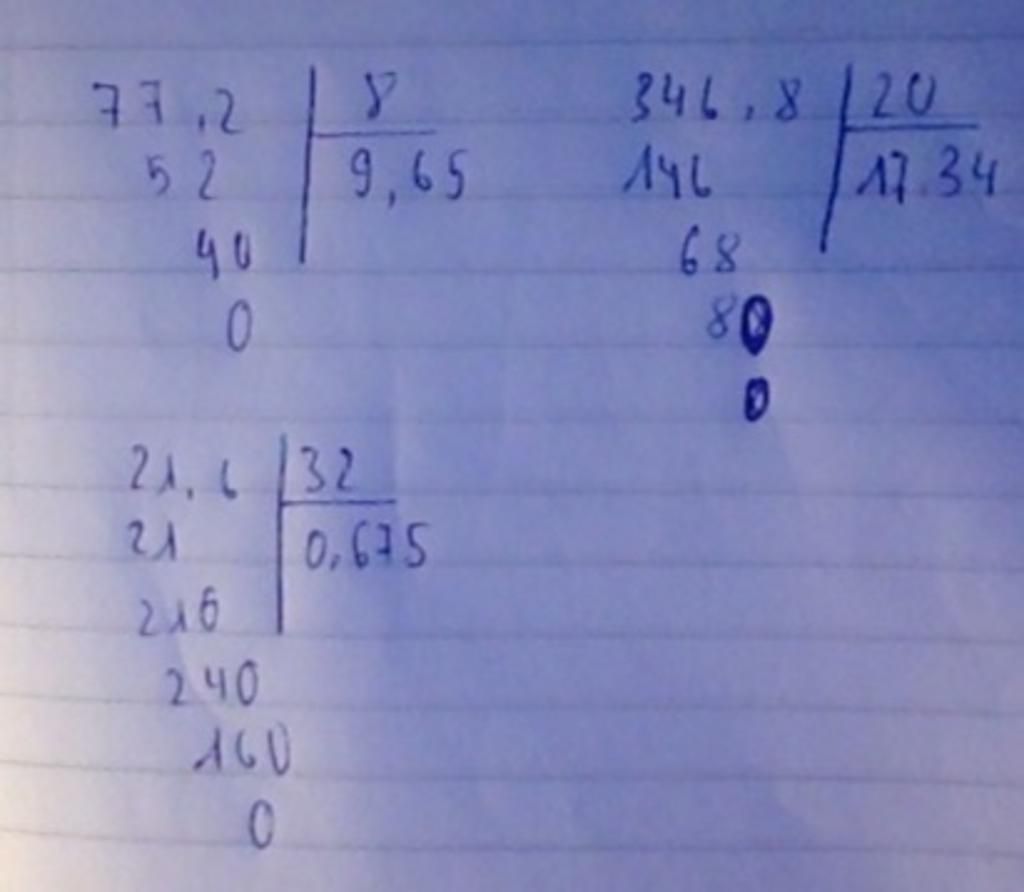 77,2 8
52 9,65
40
0
346,8 20
146 17.34
68
80
0
21,6 32
21 0,675
216
240
160
0